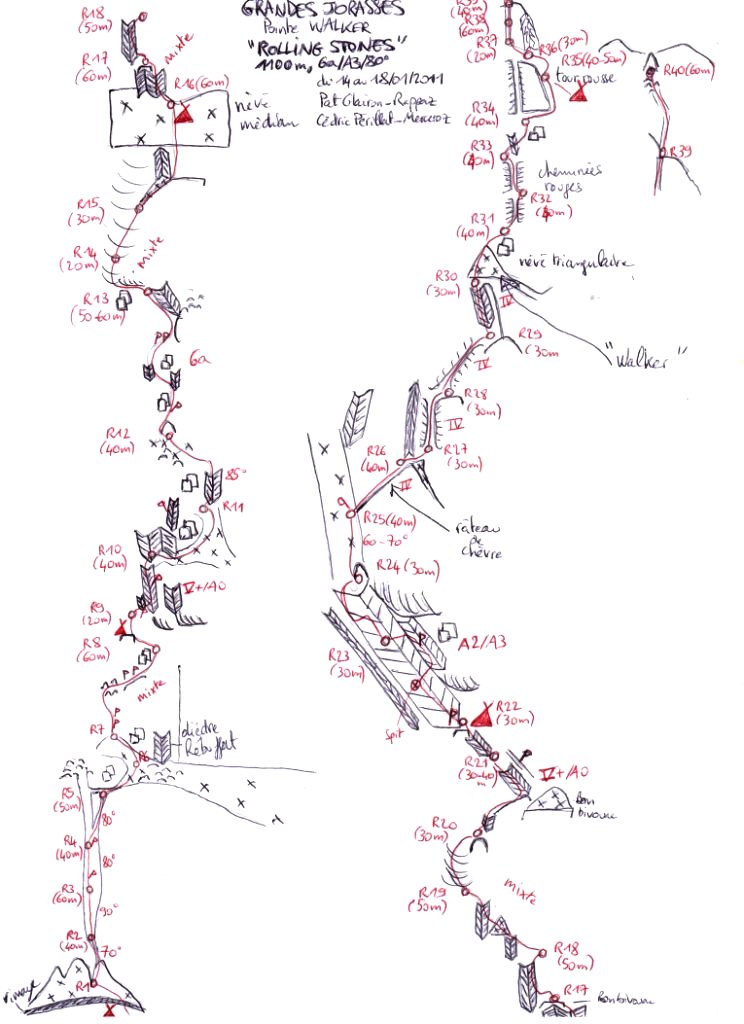 GRANDES JORASSES
Pointe WALKER
"ROLLING STONES"
1100m, 6a/A3/80°
du 14 au 18/01/2011
R18
(50m)
mixte
R17
(60m)
R16 (60m)
névé
médian
R15
(30m)
R14
(20m)
mixte
R13
(50-60m)
6a
R12
(40m)
85°
R11
R10
(40m)
V+/A0
R9
(20m)
R8
(60m)
mixte
R7
R6
dièdre
Rébuffat
R5
(50m)
80°
R4
(40m)
80°
R3
(60m)
90°
R2
(40m)
70°
R1
rimaye
(40m)
R38
(60m)
R37
(20m)
R36 (30m)
R35 (40-50m)
tour rousse
R34
(40m)
R33
(40m)
cheminées
rouges
R32
R31
(40m)
névé triangulaire
R30
(30m)
IV
R29
(30m
"Walker"
IV
R28
(30m)
IV
R27
(30m)
R26
(40m)
IV
R25 (40m)
râteau
de
chèvre
60-70°
R24 (30m)
A2/A3
R23
(30m)
Spit
R22
(30m)
R21
(30-40
m)
V+/A0
Bon
bivouac
R20
(30m)
R19
(50m)
mixte
R18
(50m)
R17
Bon bivouac
R40 (60m)
R39